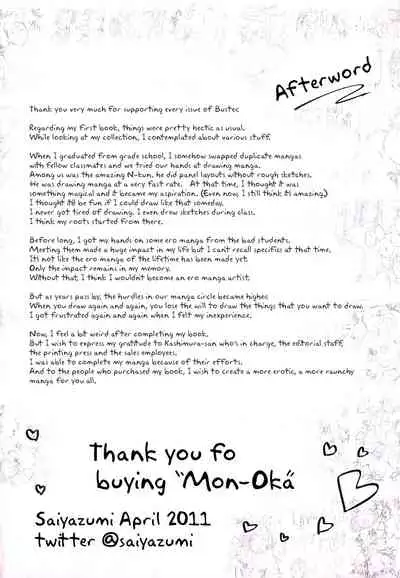 Afterword
Thank you very much for supporting every issue of Bustec
Regarding my first book, things were pretty hectic as usual.
While looking at my collection, I contemplated about various stuff.
When I graduated from grade school, I somehow swapped duplicate mangas
with fellow classmates and we tried our hands at drawing manga.
Among us was the amazing N-kun, he did panel layouts without rough sketches.
He was drawing manga at a very fast rate. At that time, I thought it was
something magical and it became my aspiration. (Even now, I still think it's amazing.)
I thought it'd be fun if I could draw like that someday.
I never got tired of drawing. I even drew sketches during class.
I think my roots started from there.
Before long, I got my hands on some ero manga from the bad students.
Meeting them made a huge impact in my life but I can't recall specifics at that time.
It's not like the ero manga of the lifetime has been made yet.
Only the impact remains in my memory.
Without that, I think I wouldn't become an ero manga artist.
But as years pass by, the hurdles in our manga circle became higher.
When you draw again and again, you lose the will to draw the things that you want to draw.
I got frustrated again and again when I felt my inexperience.
Now, I feel a bit weird after completing my book.
But I wish to express my gratitude to Kashimura-san who's in charge, the editorial staff,
the printing press and the sales employees.
I was able to complete my manga because of their efforts.
And to the people who purchased my book, I wish to create a more erotic, a more raunchy
manga for you all.
Thank you fo
buying "Mon-Oka"
Saiyazumi April 2011
twitter @saiyazumi